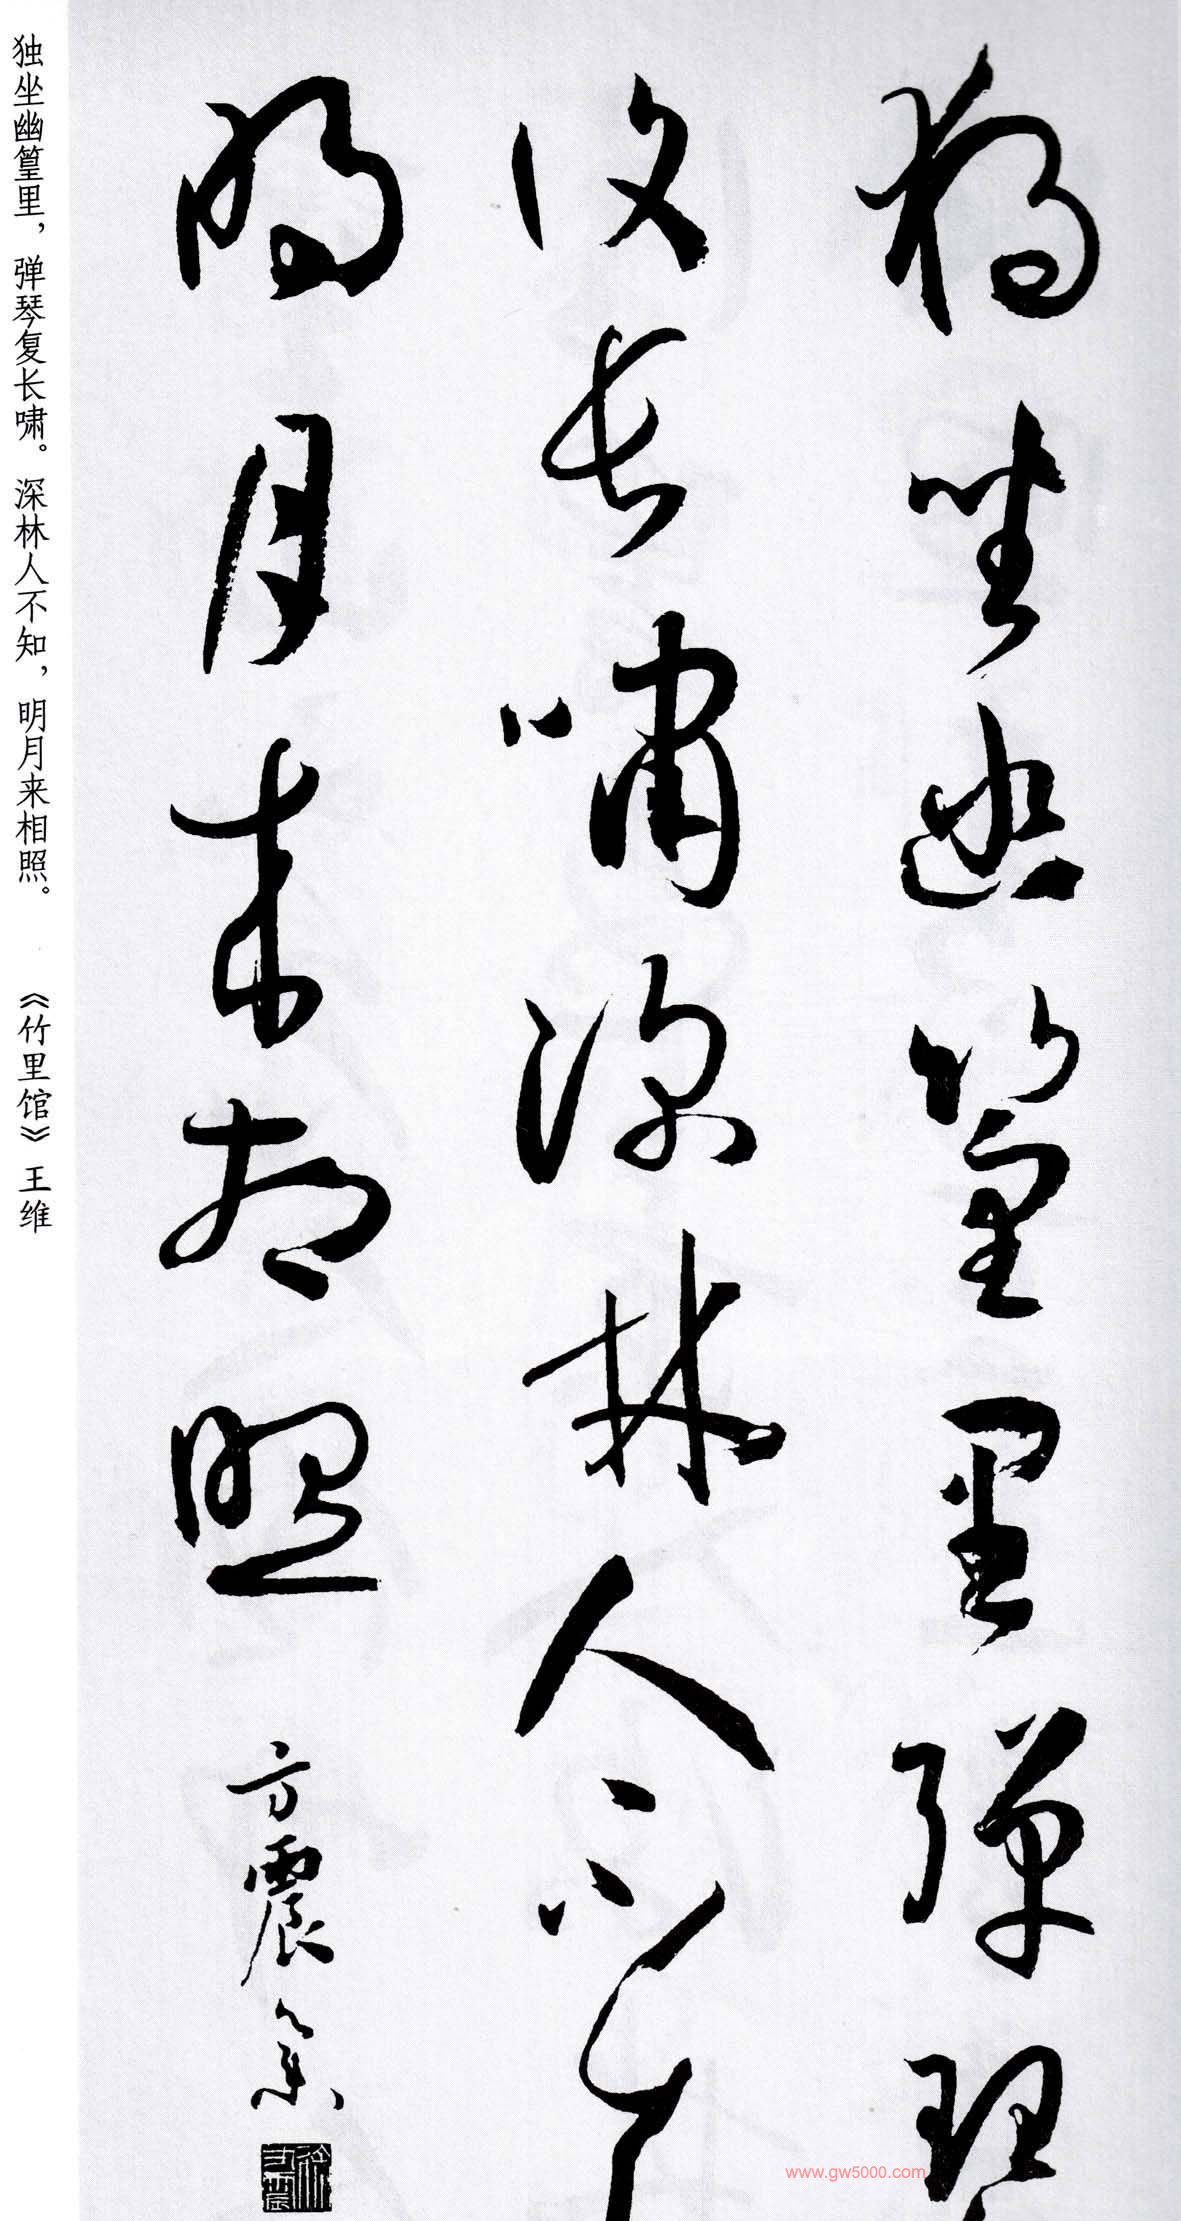 獨坐幽篁里彈琴
復長嘯深林人不知
明月來相照
方震
独坐幽篁里，弹琴复长啸。深林人不知，明月来相照。 《竹里馆》王维
www.gw5000.com